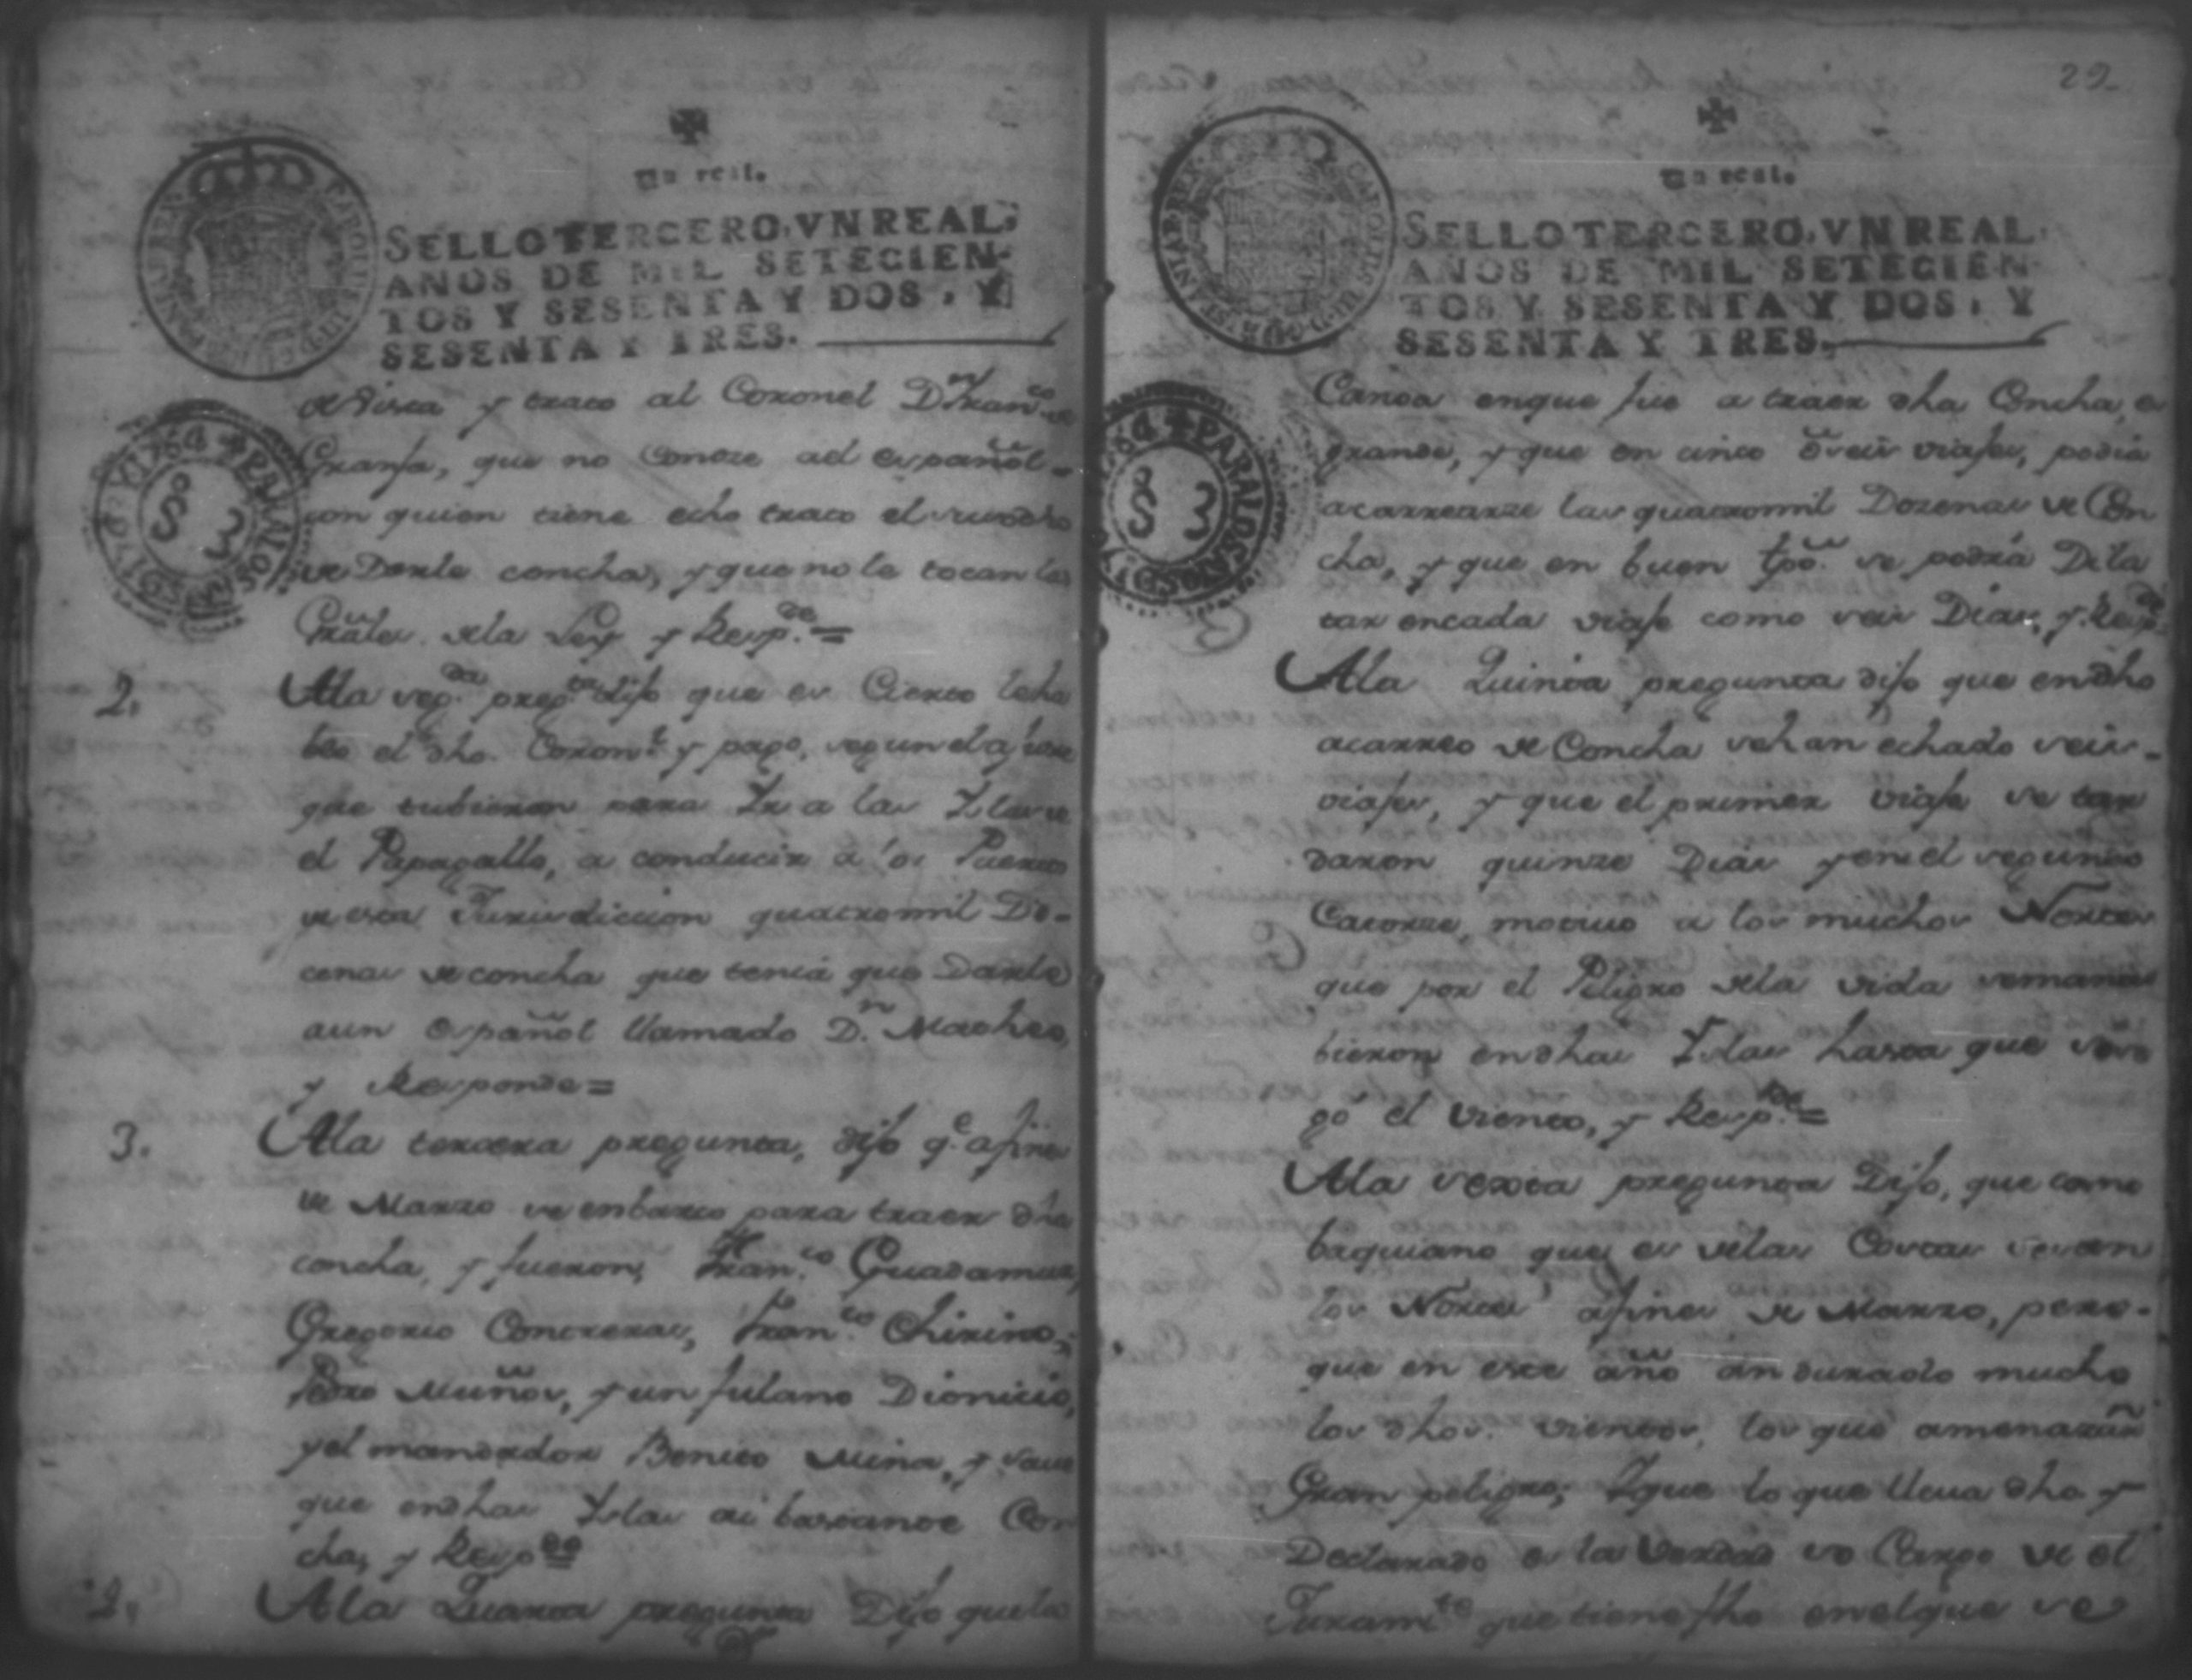 Un real.
SELLO TERCERO, VN REAL,
AÑOS DE MIL SETECIEN-
TOS Y SESENTA Y DOS, Y
SESENTA Y TRES.
de vista y trato al Coronel Dn. Franco. de
Granja, que no Conoze ael español
con quien tiene echo trato el
de Darle concha, y que no le tocan las
Grāles dela Ley y Resp.de =
2. Ala seg.da preg.ta dijo que es Cierto
el dho. Coron.l y pago, segun el
que tubieron para Yr a las Yslas de
el Papagallo, a conducir a los Puertos
de esta Jurisdiccion quatromil Do-
cenas de concha que tenia que Darle
aun español llamado D.n Matheo,
y Responde =
3. Ala tercera pregunta, dijo q.e afines
de Marzo se enbarco para traer dha
concha, y fueron, Fran.co Guadamuz,
Gregorio Contreras, Fran.co Chirino,
Pedro Muños, y un fulano Dionicio,
y el mandador Benito Mina, y save
que endhas Yslas ai bastante Con
cha, y Resp.de
Ala Quarta pregunta Dijo que la
29
Un real.
SELLO TERCERO, VN REAL
AÑOS DE MIL SETECIEN-
TOS Y SESENTA Y DOS, Y
SESENTA Y TRES.
Canoa enque fue a traer dha Concha, es
grande, y que en cinco o seis viajes, podia
acarrearze las quatromil Dozenas de Con
cha, y que en buen tpō. se podrá Dila
tar encada viaje como seis Dias, y Resp.de
Ala Quinta pregunta dijo que endho
acarreo de Concha sehan echado seis
viajes, y que el primer viaje se tar
daron quinze Dias y en el segundo
Catorze, motivo a los muchos Nortes
que por el Peligro dela vida semanu
bieron endhas Yslas hasta que sose
gó el viento, y Resp.de =
Ala sexta pregunta Dijo, que como
baquiano que es delas Costas sesan
los Nortes afines de Marzo, pero
que en este año an durado mucho
los dhos. vientos, los que amenazan
Gran peligro; Yque lo que lleva dho y
Declarado es la Verdad so Cargo de el
Juram.to que tiene fho enelque se